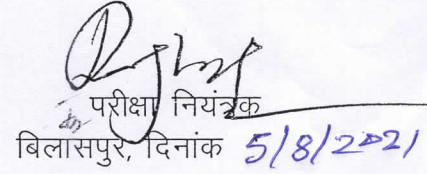 परीक्षा नियंत्रक
बिलासपुर, दिनांक 5/8/2021